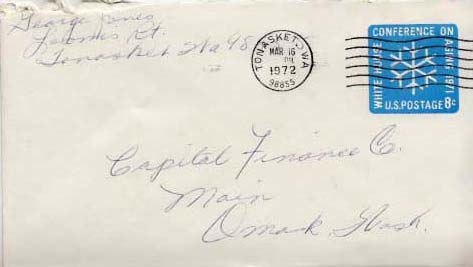 George Jones
Loomis Rt.
Tonasket, Wa 98
TONASKET, WA
MAR 16
PM
1972
98855
WHITE HOUSE CONFERENCE ON AGING 1971
U.S. POSTAGE 8¢
Capital Finance Co.
Main
Omak, Wash.